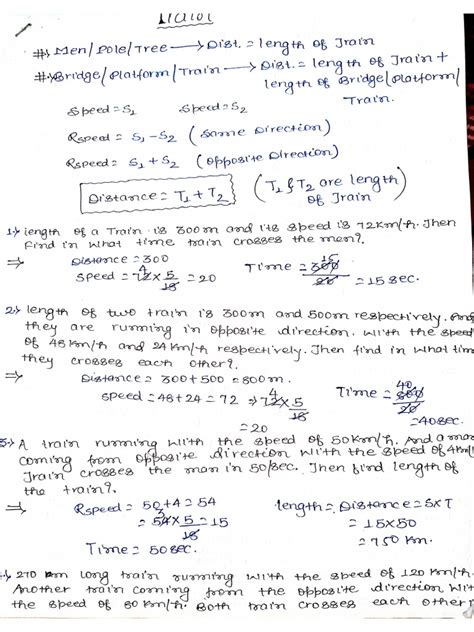 #⇒ Men/Pole/Tree → Dist. = length of Train
#⇒ Bridge/Platform/Train → Dist. = length of Train +
length of Bridge/Platform/
Train.
Speed = S₁ Speed = S₂
Rspeed = S₁ - S₂ (Same Direction)
Rspeed = S₁ + S₂ (Opposite Direction)
Distance = T₁ + T₂ (T₁ & T₂ are length
of Train)
1⇒ length of a Train is 300m and its speed is 72Km/h. Then
Find in what time train crosses the men?.
⇒ Distance = 300
Speed = 72 × 5/18 = 20 4
Time = 300/20 = 15 sec. 15
2⇒ length of two train is 300m and 500m respectively. And
they are running in opposite direction. With the speed
of 48 Km/h and 24 Km/h respectively. Then find in what time
they crosses each other?.
⇒ Distance = 300 + 500 = 800m.
Speed = 48 + 24 = 72 ⇒ 72 × 5/18 4
= 20
Time = 800/20 40
= 40 sec.
A train running with the speed of 50Km/h. And a man
coming from opposite direction with the speed of 4Km/
Train crosses the man in 50/sec. Then find length of
the train?.
⇒ Rspeed = 50 + 4 = 54
= 54 × 5/18 = 15 3
Time = 50 sec.
length = Distance = S×T
= 15 × 50
= 750 Km.
270 m long train running with the speed of 120 Km/h.
Another train coming from the opposite direction with
the speed of 80 Km/h. Both train crosses each other